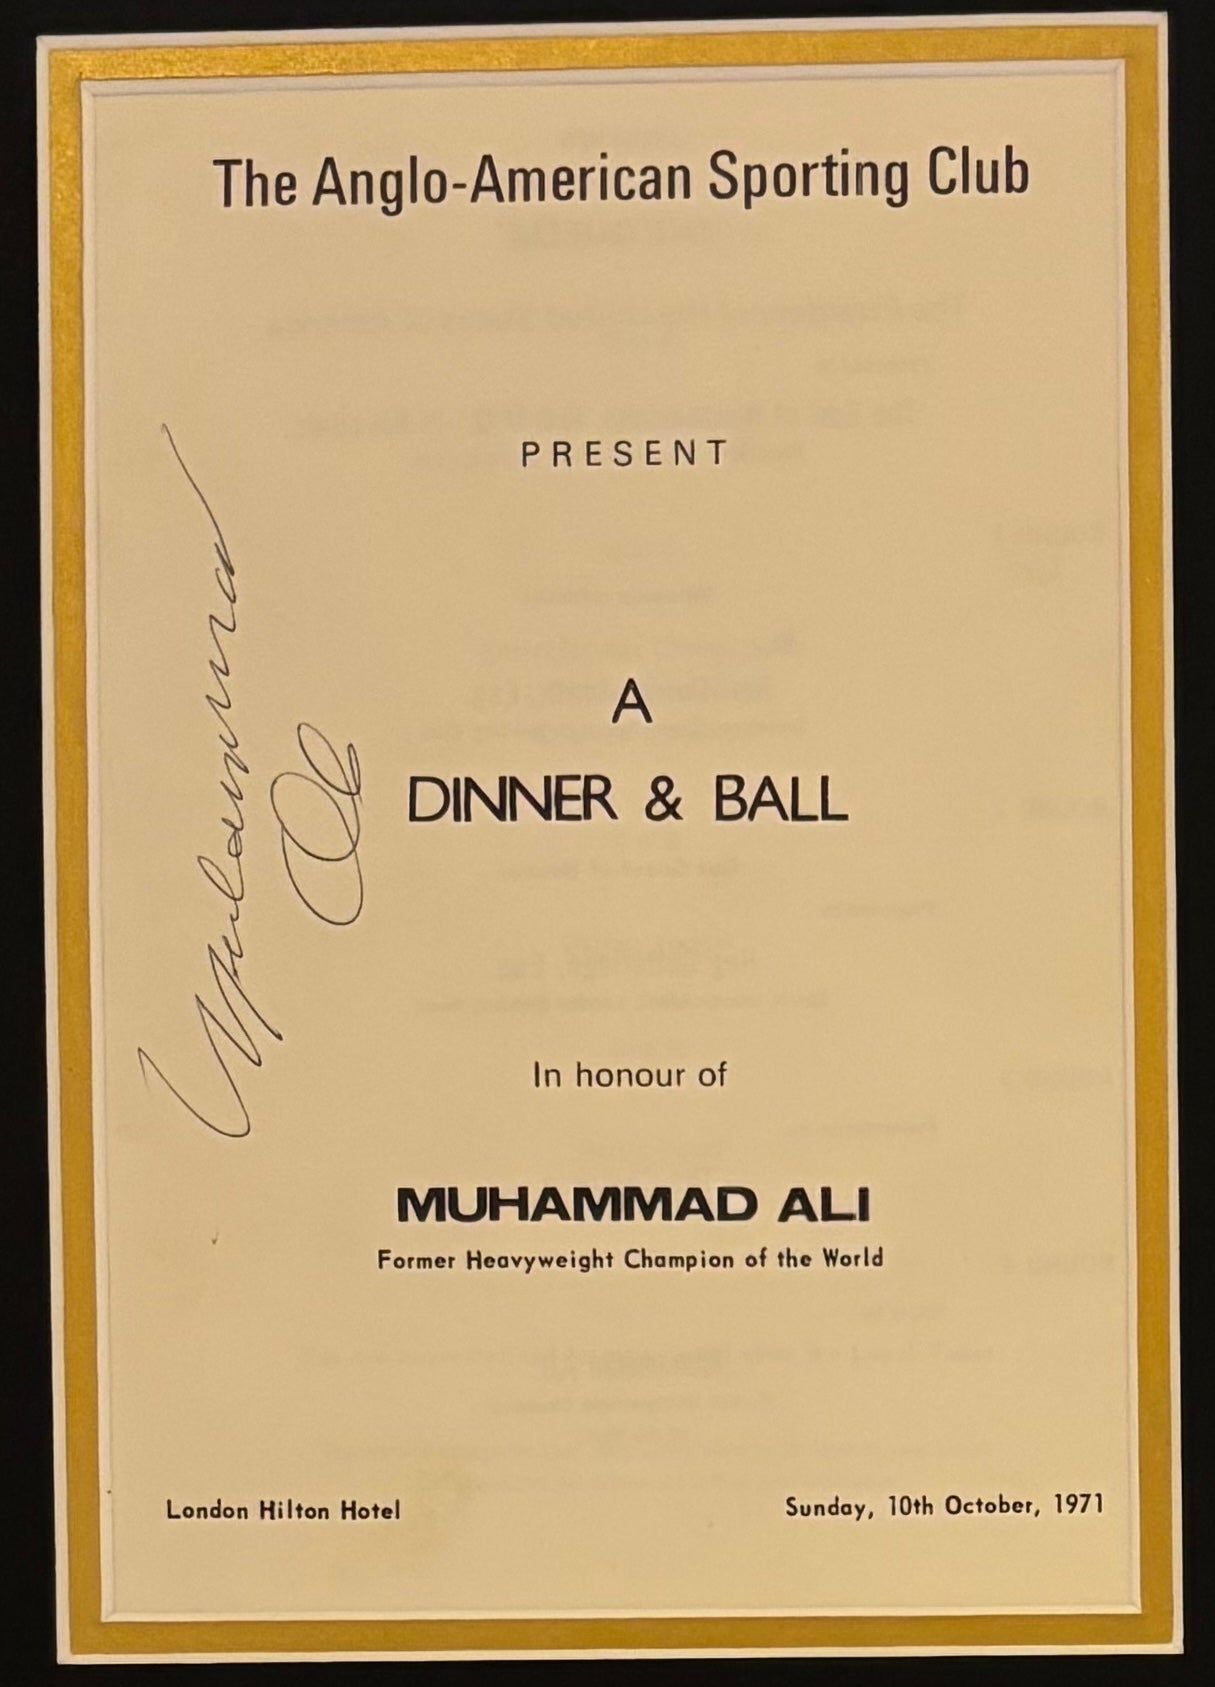 The Anglo-American Sporting Club
PRESENT
A
DINNER & BALL
Muhammad
Ali
In honour of
MUHAMMAD ALI
Former Heavyweight Champion of the World
London Hilton Hotel
Sunday, 10th October, 1971